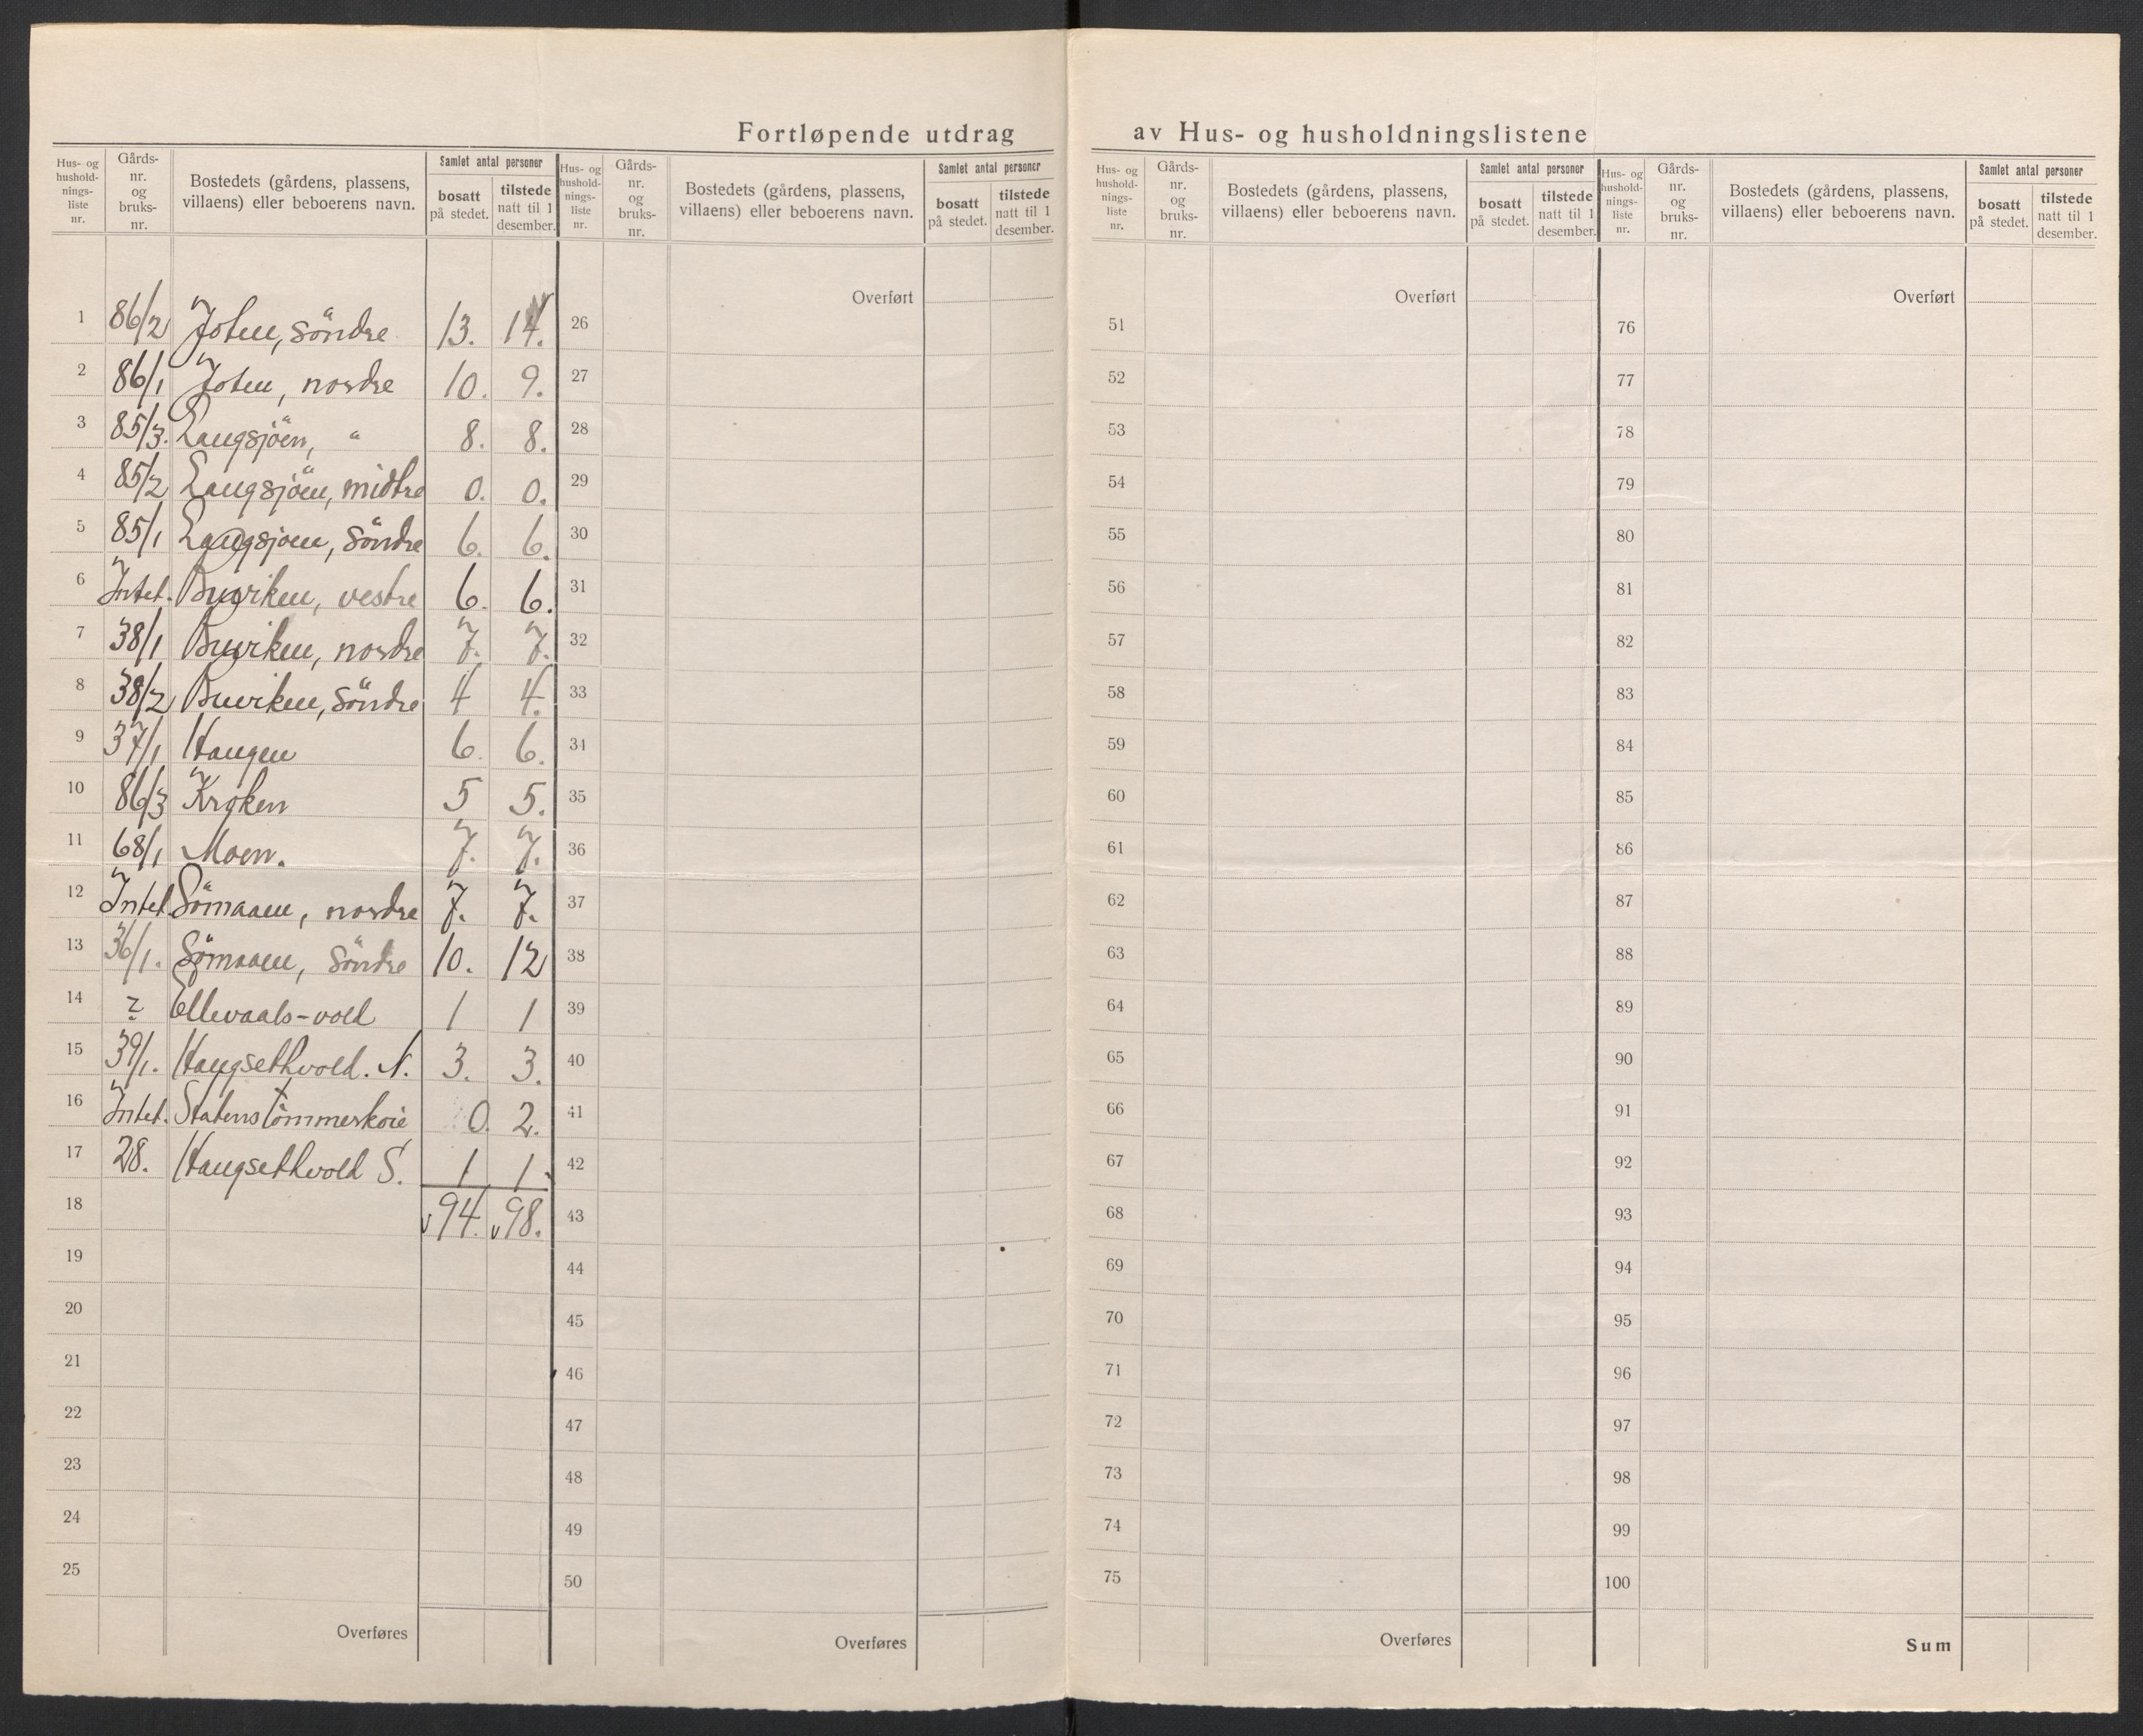 Fortløpende utdrag av Hus- og husholdningslistene
Hus- og hushold-nings-liste nr. Gårds-nr. og bruks-nr. Bostedets (gårdens, plassens, villaens) eller beboerens navn. Samlet antal personer bosatt på stedet. tilstede natt til 1 desember.
1 86/2 Joten, söndre 13. 14.
2 86/1 Joten, nordre 10. 9.
3 85/3. Langsjöen, " 8. 8.
4 85/2 Langsjöen, midtre 0. 0.
5 85/1 Langsjoen, Söndre 6. 6.
6 Intet. Buviken, vestre 6. 6.
7 38/1 Buviken, nordre 7. 7.
8 38/2 Buviken, Söndre 4 4.
9 37/1 Haugen 6. 6.
10 86/3 Kroken 5 5.
11 68/1 Moen. 7. 7.
12 Intet. Sömaaen, nordre 7. 7.
13 36/1. Sömaaen, Söndre 10. 12
14 ? Ellevaals-vold 1 1
15 39/1. Haugsethvold. N. 3. 3.
16 Intet. Statens Tömmerkoie 0. 2.
17 28. Haugsethvold S. 1 1.
18 94. 98.
19
20
21
22
23
24
25
Overføres
Hus- og hushold-nings-liste nr. Gårds-nr. og bruks-nr. Bostedets (gårdens, plassens, villaens) eller beboerens navn. Samlet antal personer bosatt på stedet. tilstede natt til 1 desember.
Overført
26
27
28
29
30
31
32
33
31
35
36
37
38
39
40
41
42
43
44
45
46
47
48
49
50
Overføres
Hus- og hushold-nings-liste nr. Gårds-nr. og bruks-nr. Bostedets (gårdens, plassens, villaens) eller beboerens navn. Samlet antal personer bosatt på stedet. tilstede natt til 1 desember.
Overført
51
52
53
54
55
56
57
58
59
60
61
62
63
64
65
66
67
68
69
70
71
72
73
74
75
Overføres
Hus- og hushold-nings-liste nr. Gårds-nr. og bruks-nr. Bostedets (gårdens, plassens, villaens) eller beboerens navn. Samlet antal personer bosatt på stedet. tilstede natt til 1 desember.
Overført
76
77
78
79
80
81
82
83
84
85
86
87
88
89
90
91
92
93
94
95
96
97
98
99
100
Sum